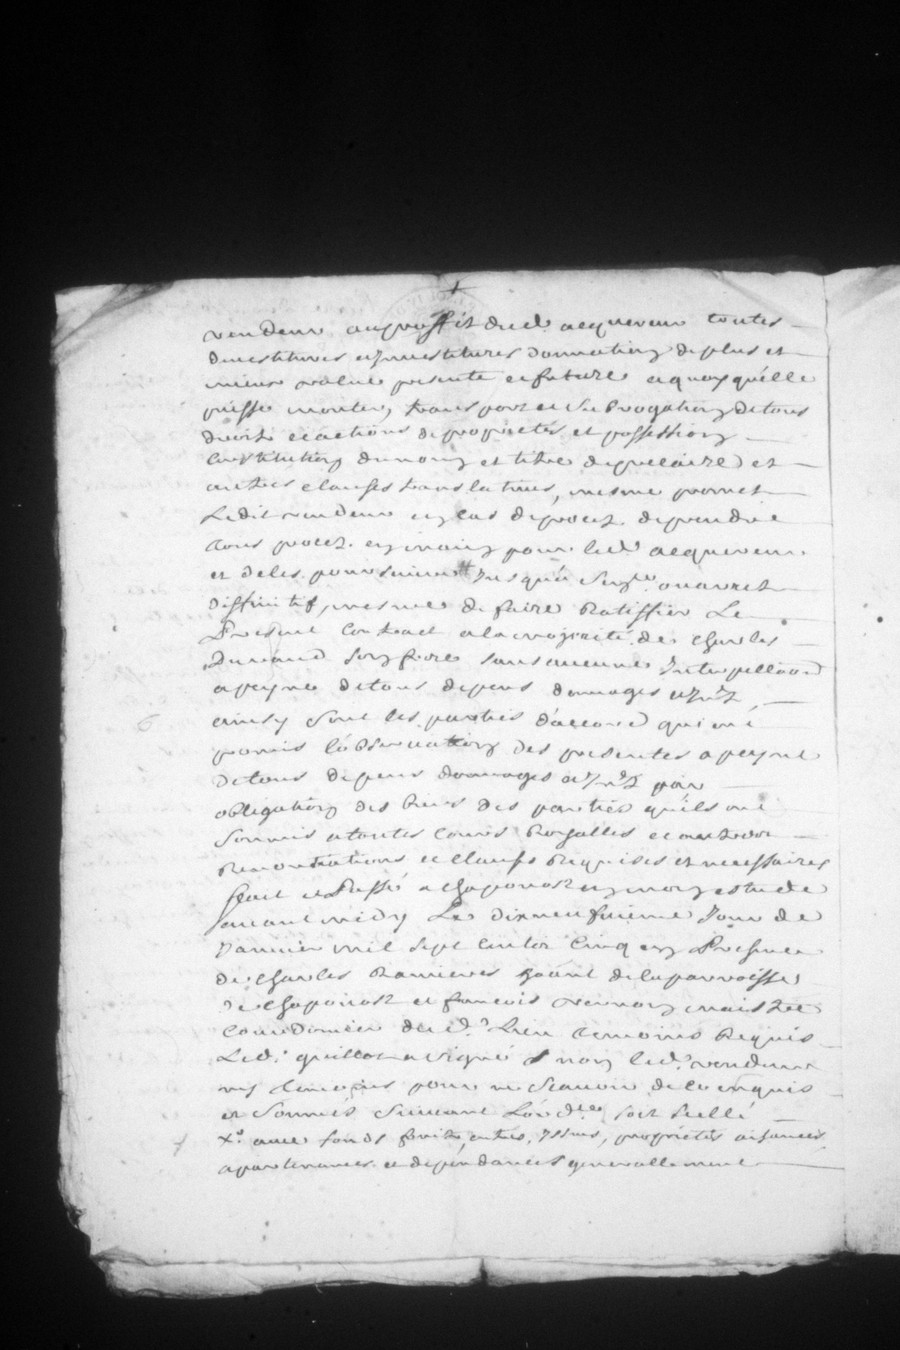 vendeur au proffit dud. acquereur toutes
devestitures et jnvestitures donnation de plus et
mieux value presente et future a quoy qu'elle
puisse monter, transport et subrogation de tous
droits et actions de proprietés et possession
constitution du nom et titre de precaire et
autres clauses translatives, mesme promet
ledit vendeur en cas de procet de prendre
tous procet en main pour led. acquereur
et de les poursuivre jusqu'a sentce ou arrest
diffinitif, mesme de faire ratiffier le
present contract a la majorité de Charles
Durand son frere sans aucune jnterpellaon
a peyne de tous depens domages et jnts,
ainsy sont les parties d'accord qui ont
promis l'observation des presentes a peyne
de tous depens dommages et jnts par
obligation des biens des parties qu'ils ont
soumis a toutes cours Royalles et autres
Renontiations et clauses Requises et necessaires
fait et Passé a Chaponost en mon estude
avant midy Le dixneufvieme jour de
Janvier mil sept cent cinq en Presence
de Charles de la parroisse
de Chaponost et francois maistre
cordonnier dud. Lieu temoins Requis
Led. Guillot a signé & non led. vendeur
ny temoins pour ne scavoir de ce enquis
et sommés suivant L'ordce soit scellé
Xo. avec fonds entrées, jssues, proprietés aisances
apartenances et dépendances generallement